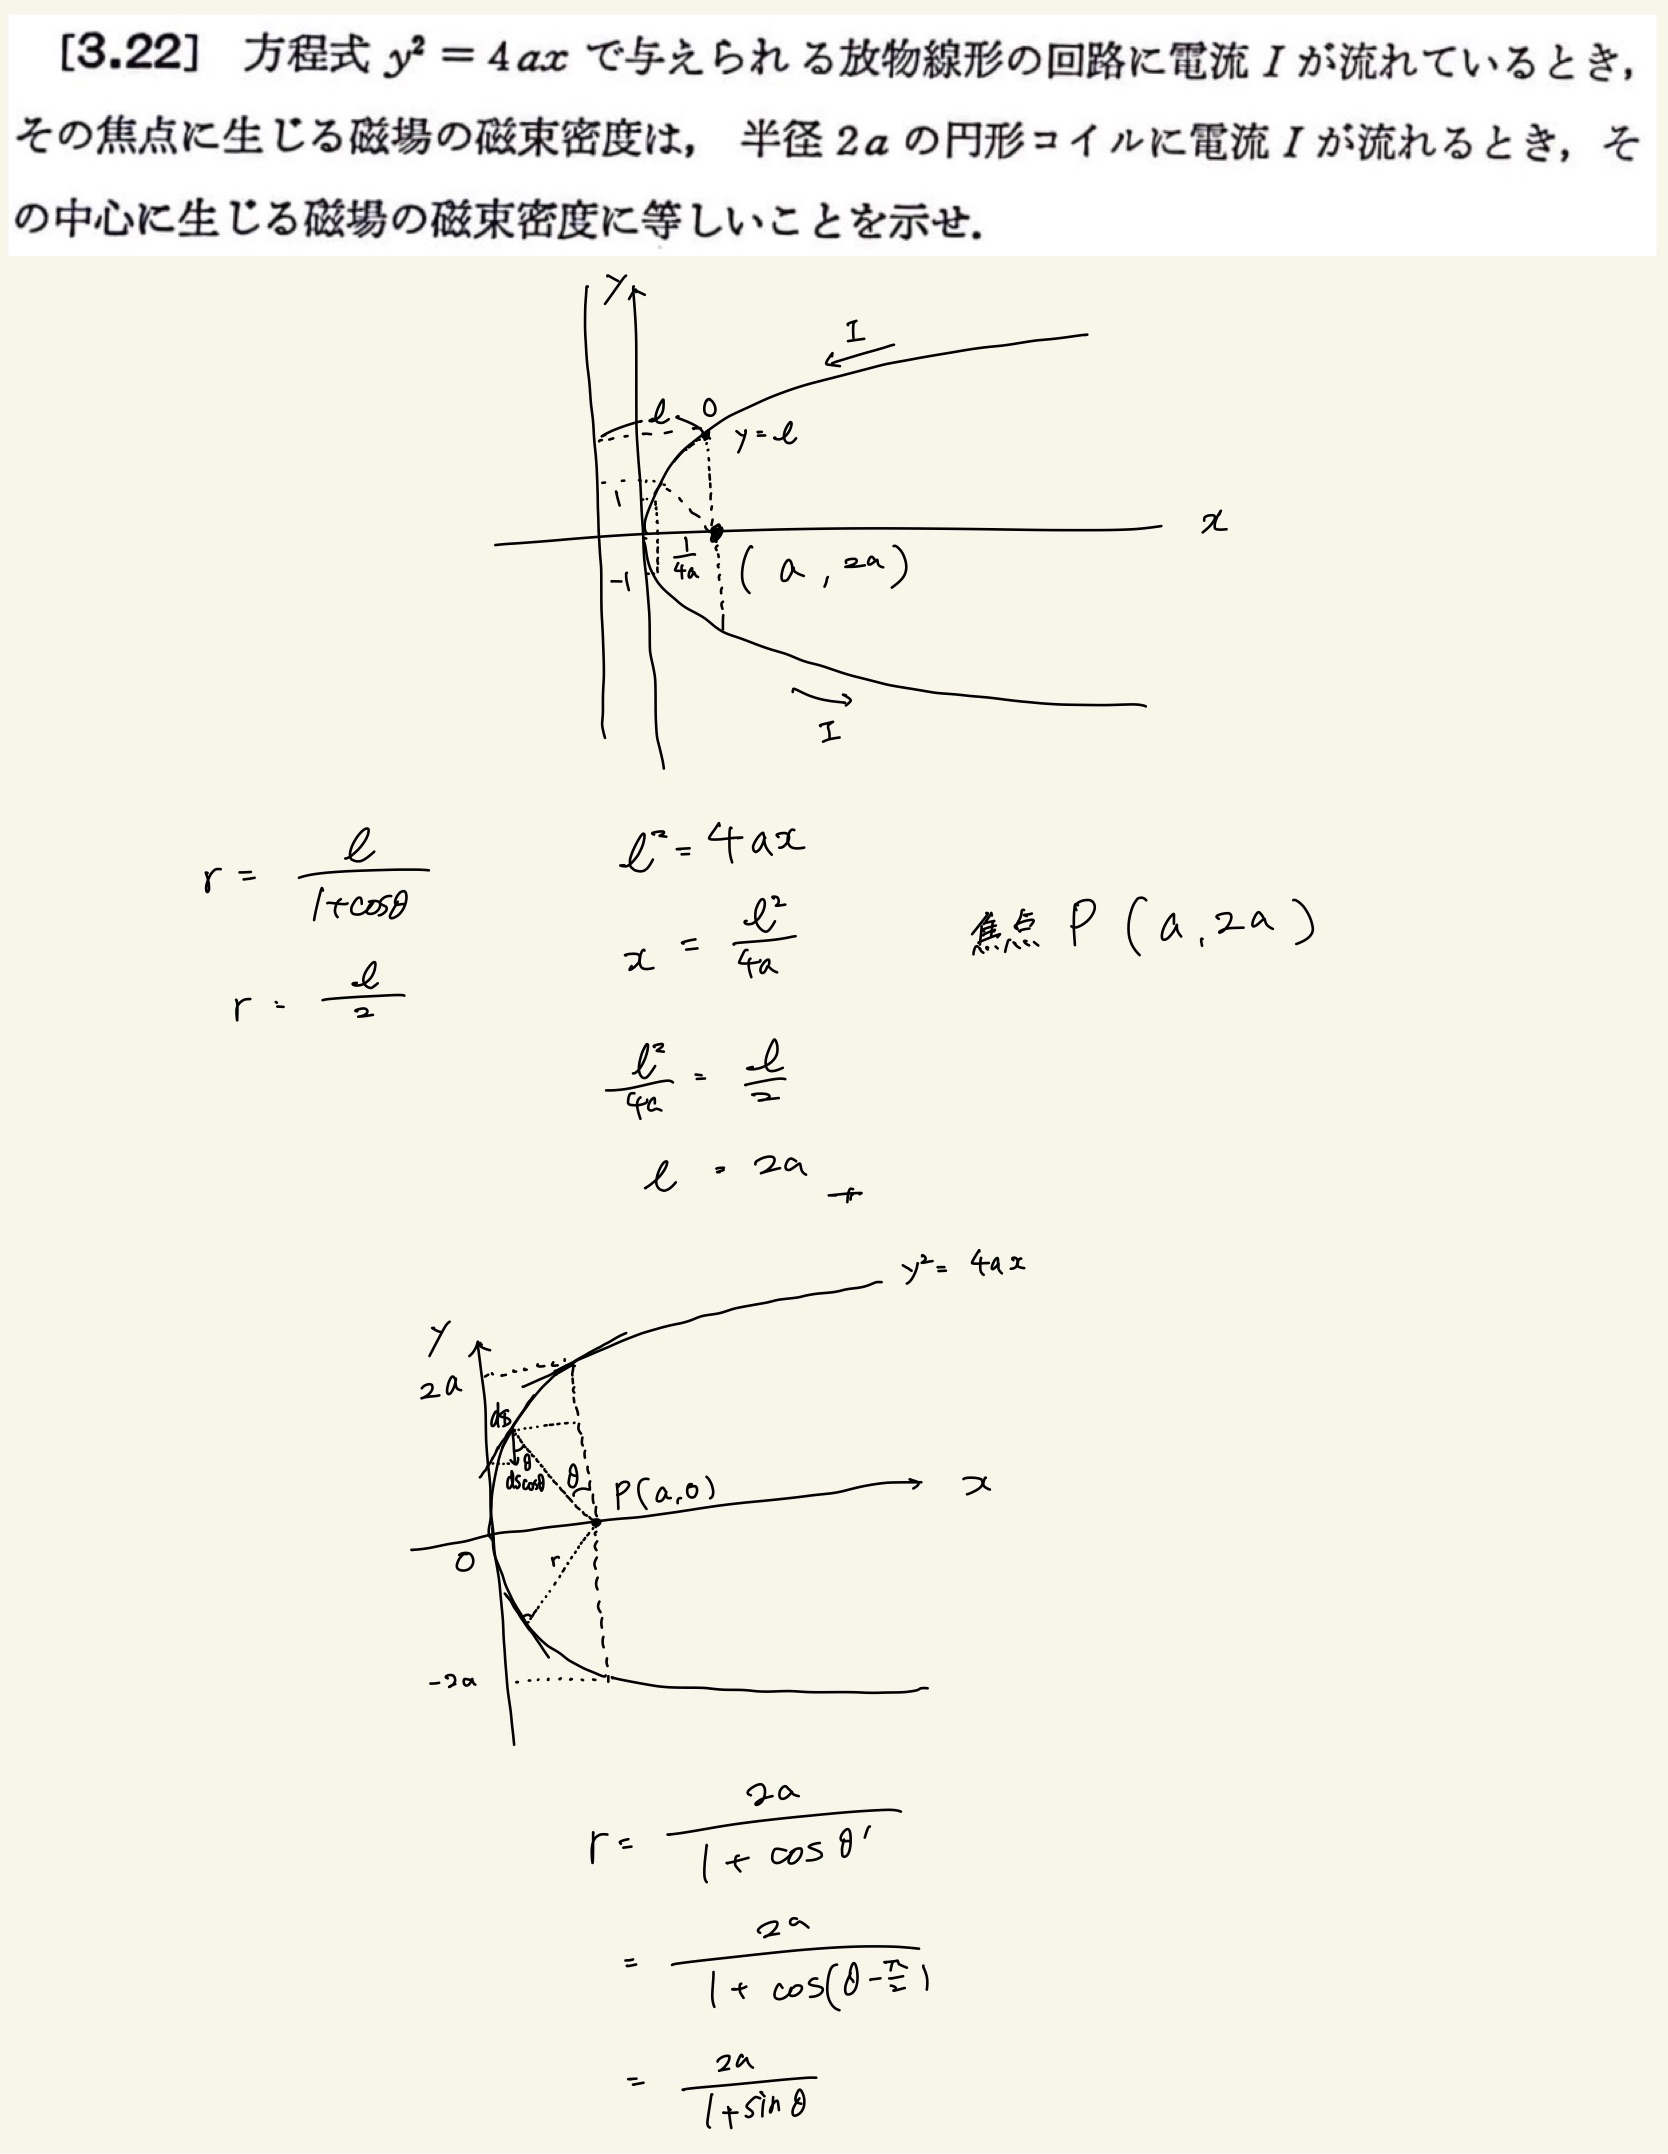 [3.22] 方程式 y² = 4ax で与えられる放物線形の回路に電流 I が流れているとき,
その焦点に生じる磁場の磁束密度は, 半径 2a の円形コイルに電流 I が流れるとき, そ
の中心に生じる磁場の磁束密度に等しいことを示せ.
y
I
l
0
y=l
1
x
1/4a
(a, 2a)
-1
I
r = l/(1+cosθ)
l² = 4ax
x = l²/4a
焦点 P (a, 2a)
r = l/2
l²/4a = l/2
l = 2a
y² = 4ax
y
2a
ds
θ
ds cosθ
θ
P(a,0)
x
0
r
-2a
r = 2a/(1 + cos θ')
= 2a/(1 + cos(θ - π/2))
= 2a/(1+sin θ)